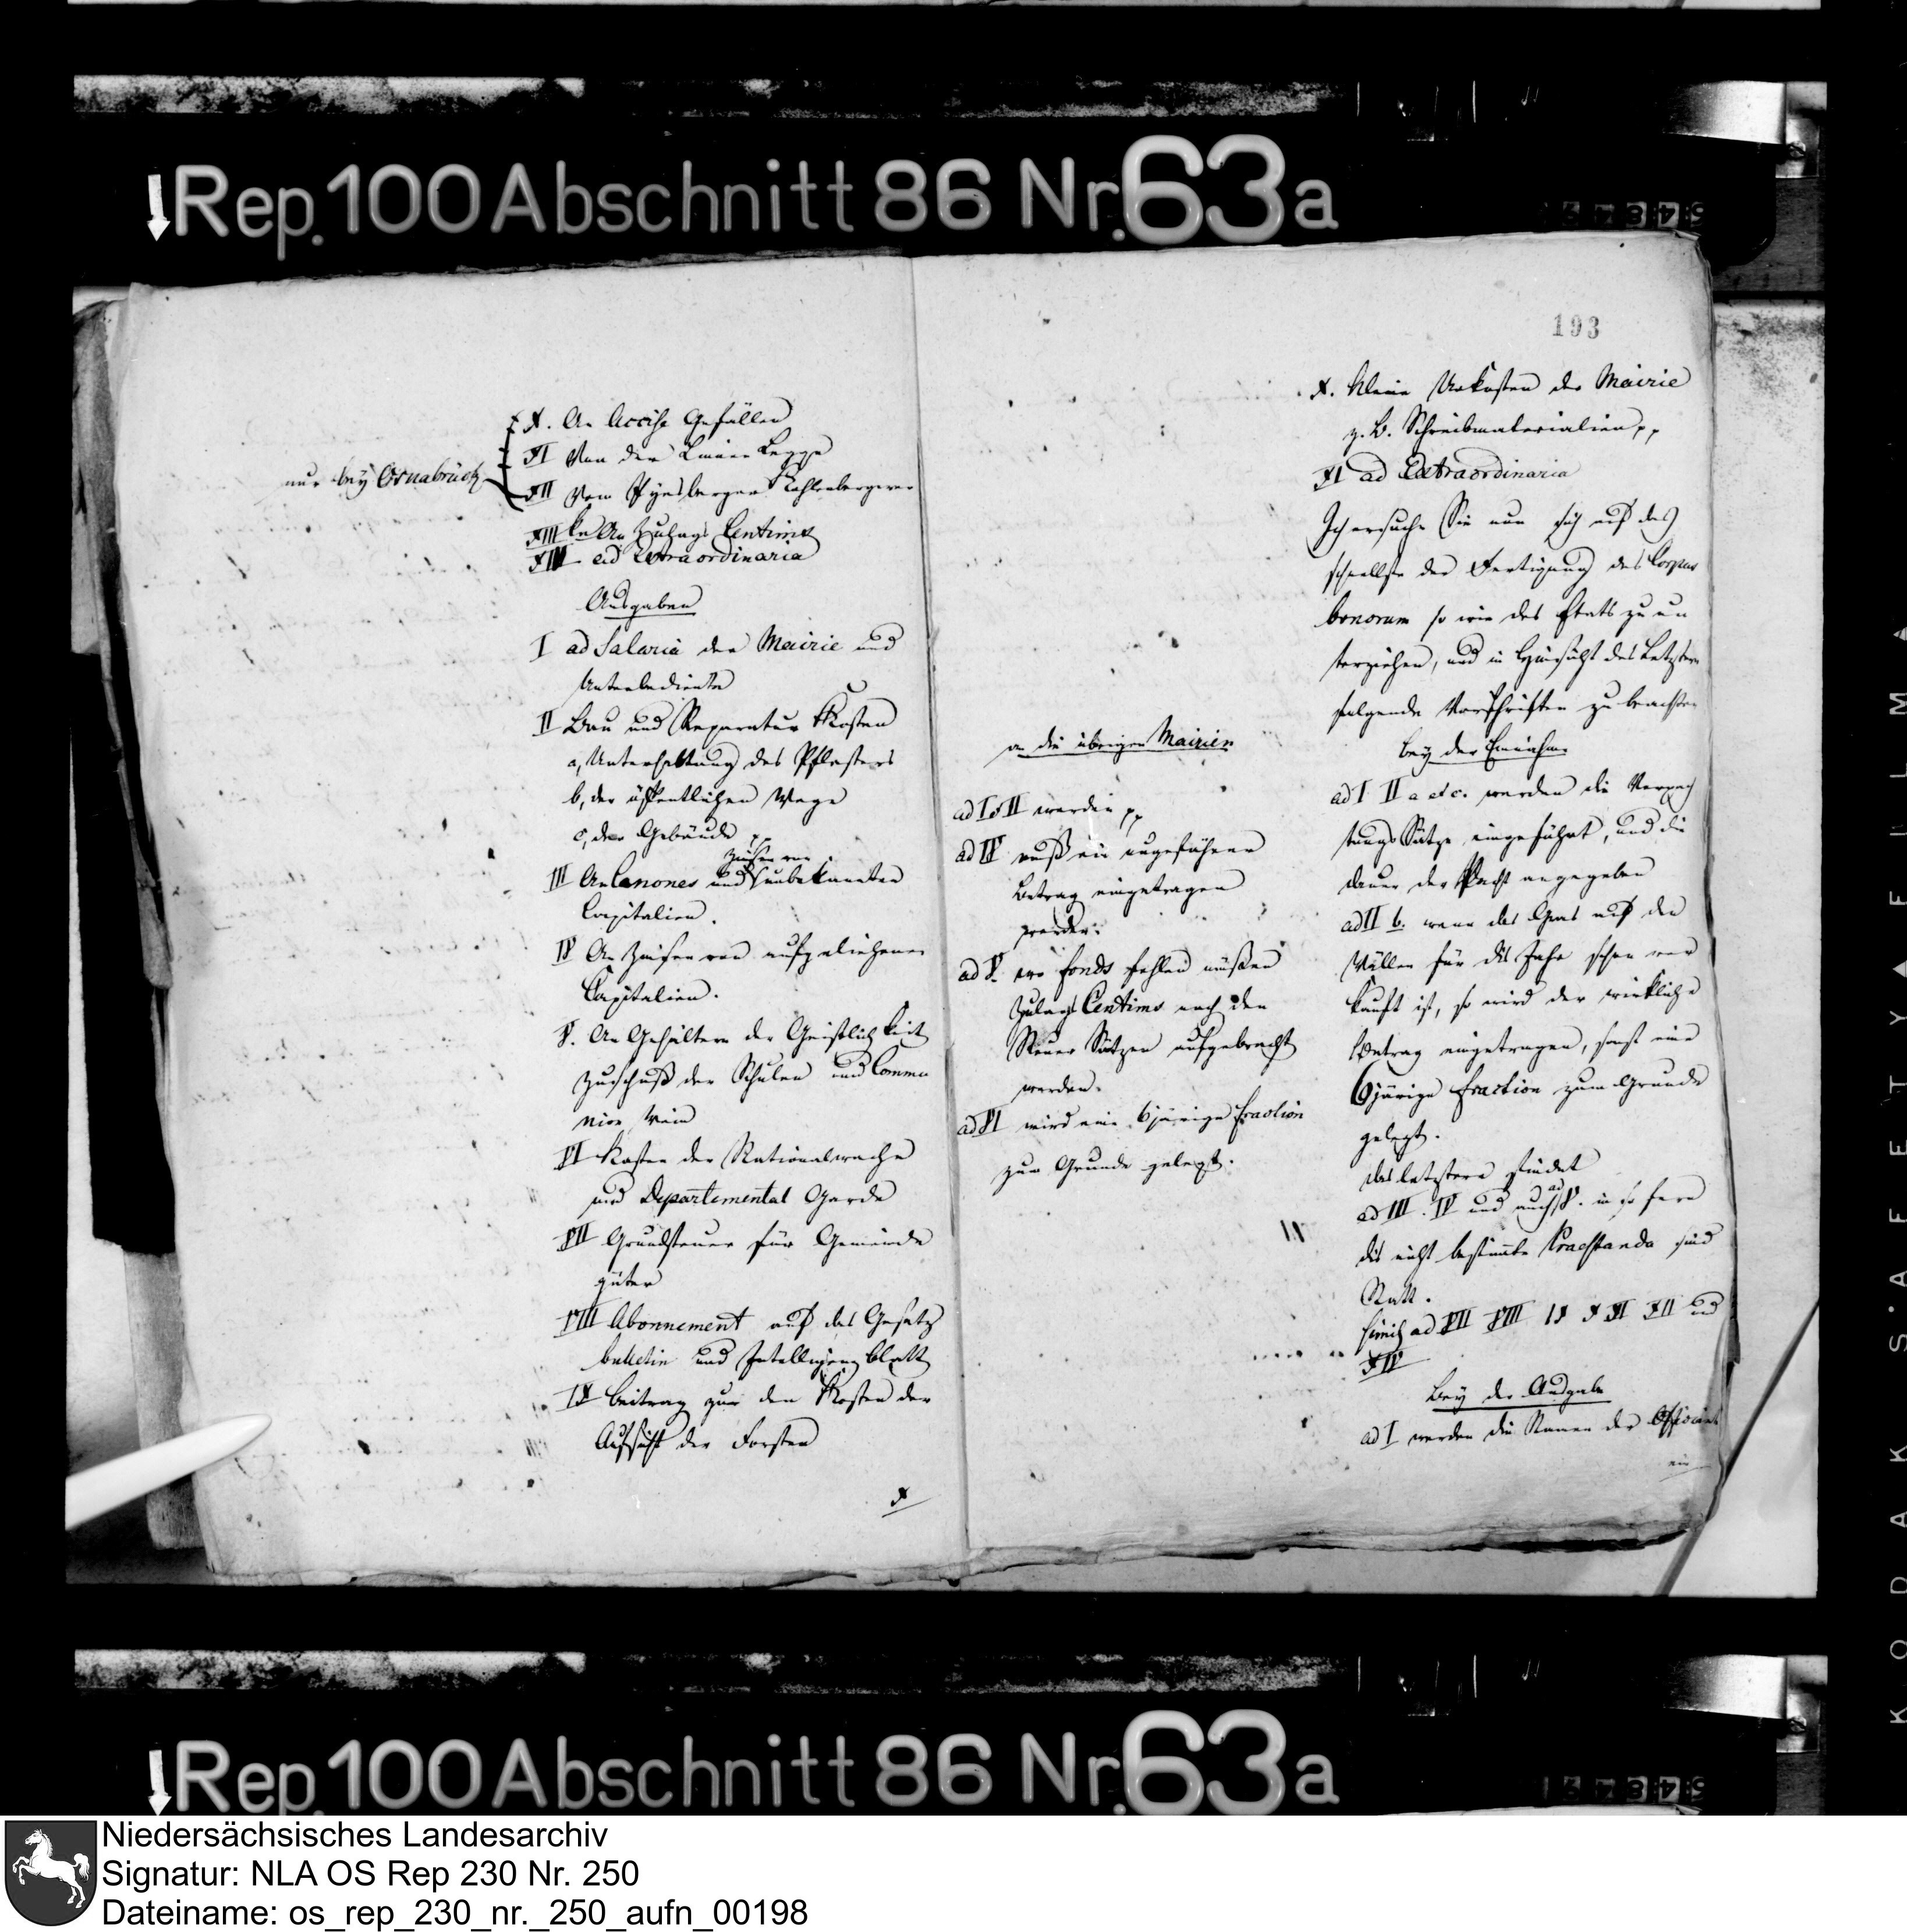 Rep. 100 Abschnitt 86 Nr. 63a
X. An Accise Gefällen
XI Von der Linnen Legge
nur bey Osnabrück
XII Vom Pyesberger Kohlenbergwer
ke
XIII An Zulags Centims
XIV ad Extraordinaria
Ausgaben
I ad Salaria der Mairie und
Unterbediente
II Bau und Reparatur Kosten
a, Unterhaltung des Pflasters
b, der öffentlichen Wege
c, der Gebäude pp
Zinsen von
III An Canones und unbekannten
Capitalien.
IV An Zinsen von aufgeliehenen
Capitalien.
V. An Gehältern der Geistlichkeit
Zuschuß der Schulen und Commu
nion Wein
VI Kosten der Nationalwache
und Departemental Garde
VII Grundsteuer für Gemeinde
güter
VIII Abonnement auf das Gesetz
bulletin und Intelligenzblatt
IX Beitrag zu den Kosten der
Aufsicht der Forsten
X
an die übrigen Mairien
ad I & II werden pp
ad IV muß ein ungefährer
Betrag eingetragen
werden.
ad V. wo fonds fehlen müßen
Zulags Centims nach den
Steuer Sätzen aufgebracht
werden.
ad VI wird eine 6järige fraction
zum Grunde gelegt.
193
X. Kleine Unkosten der Mairie
z. B. Schreibmaterialien pp
XI ad Extraordinaria
Ich ersuche Sie nun sich auf das
schnellste der Fertigung des Corpus
bonorum so wie des Etats zu un
terziehen, und in Hinsicht des Letztern
folgende Vorschriften zu beachten
bey der Einnahme
ad I II a etc. werden die Verpach
tungs Sätze eingeführt, und die
dauer der Pacht angegeben
ad II b. wenn das Gras auf den
Wällen für dis Jahr schon ver
kauft ist, so wird der wirkliche
Betrag eingetragen, sonst eine
6järige fraction zum Grunde
gelegt.
das letztere findet
ad
ad III. IV und auch V. in so fern
dis nicht bestimmte Praestanda sind
Statt.
ad VII VIII IX X XI XII und
XIV
Bey der Ausgabe
ad I werden die Namen der Officiant
ein
Rep. 100 Abschnitt 86 Nr. 63a
KODAK SAFETY FILM
Niedersächsisches Landesarchiv
Signatur: NLA OS Rep 230 Nr. 250
Dateiname: os_rep_230_nr._250_aufn_00198